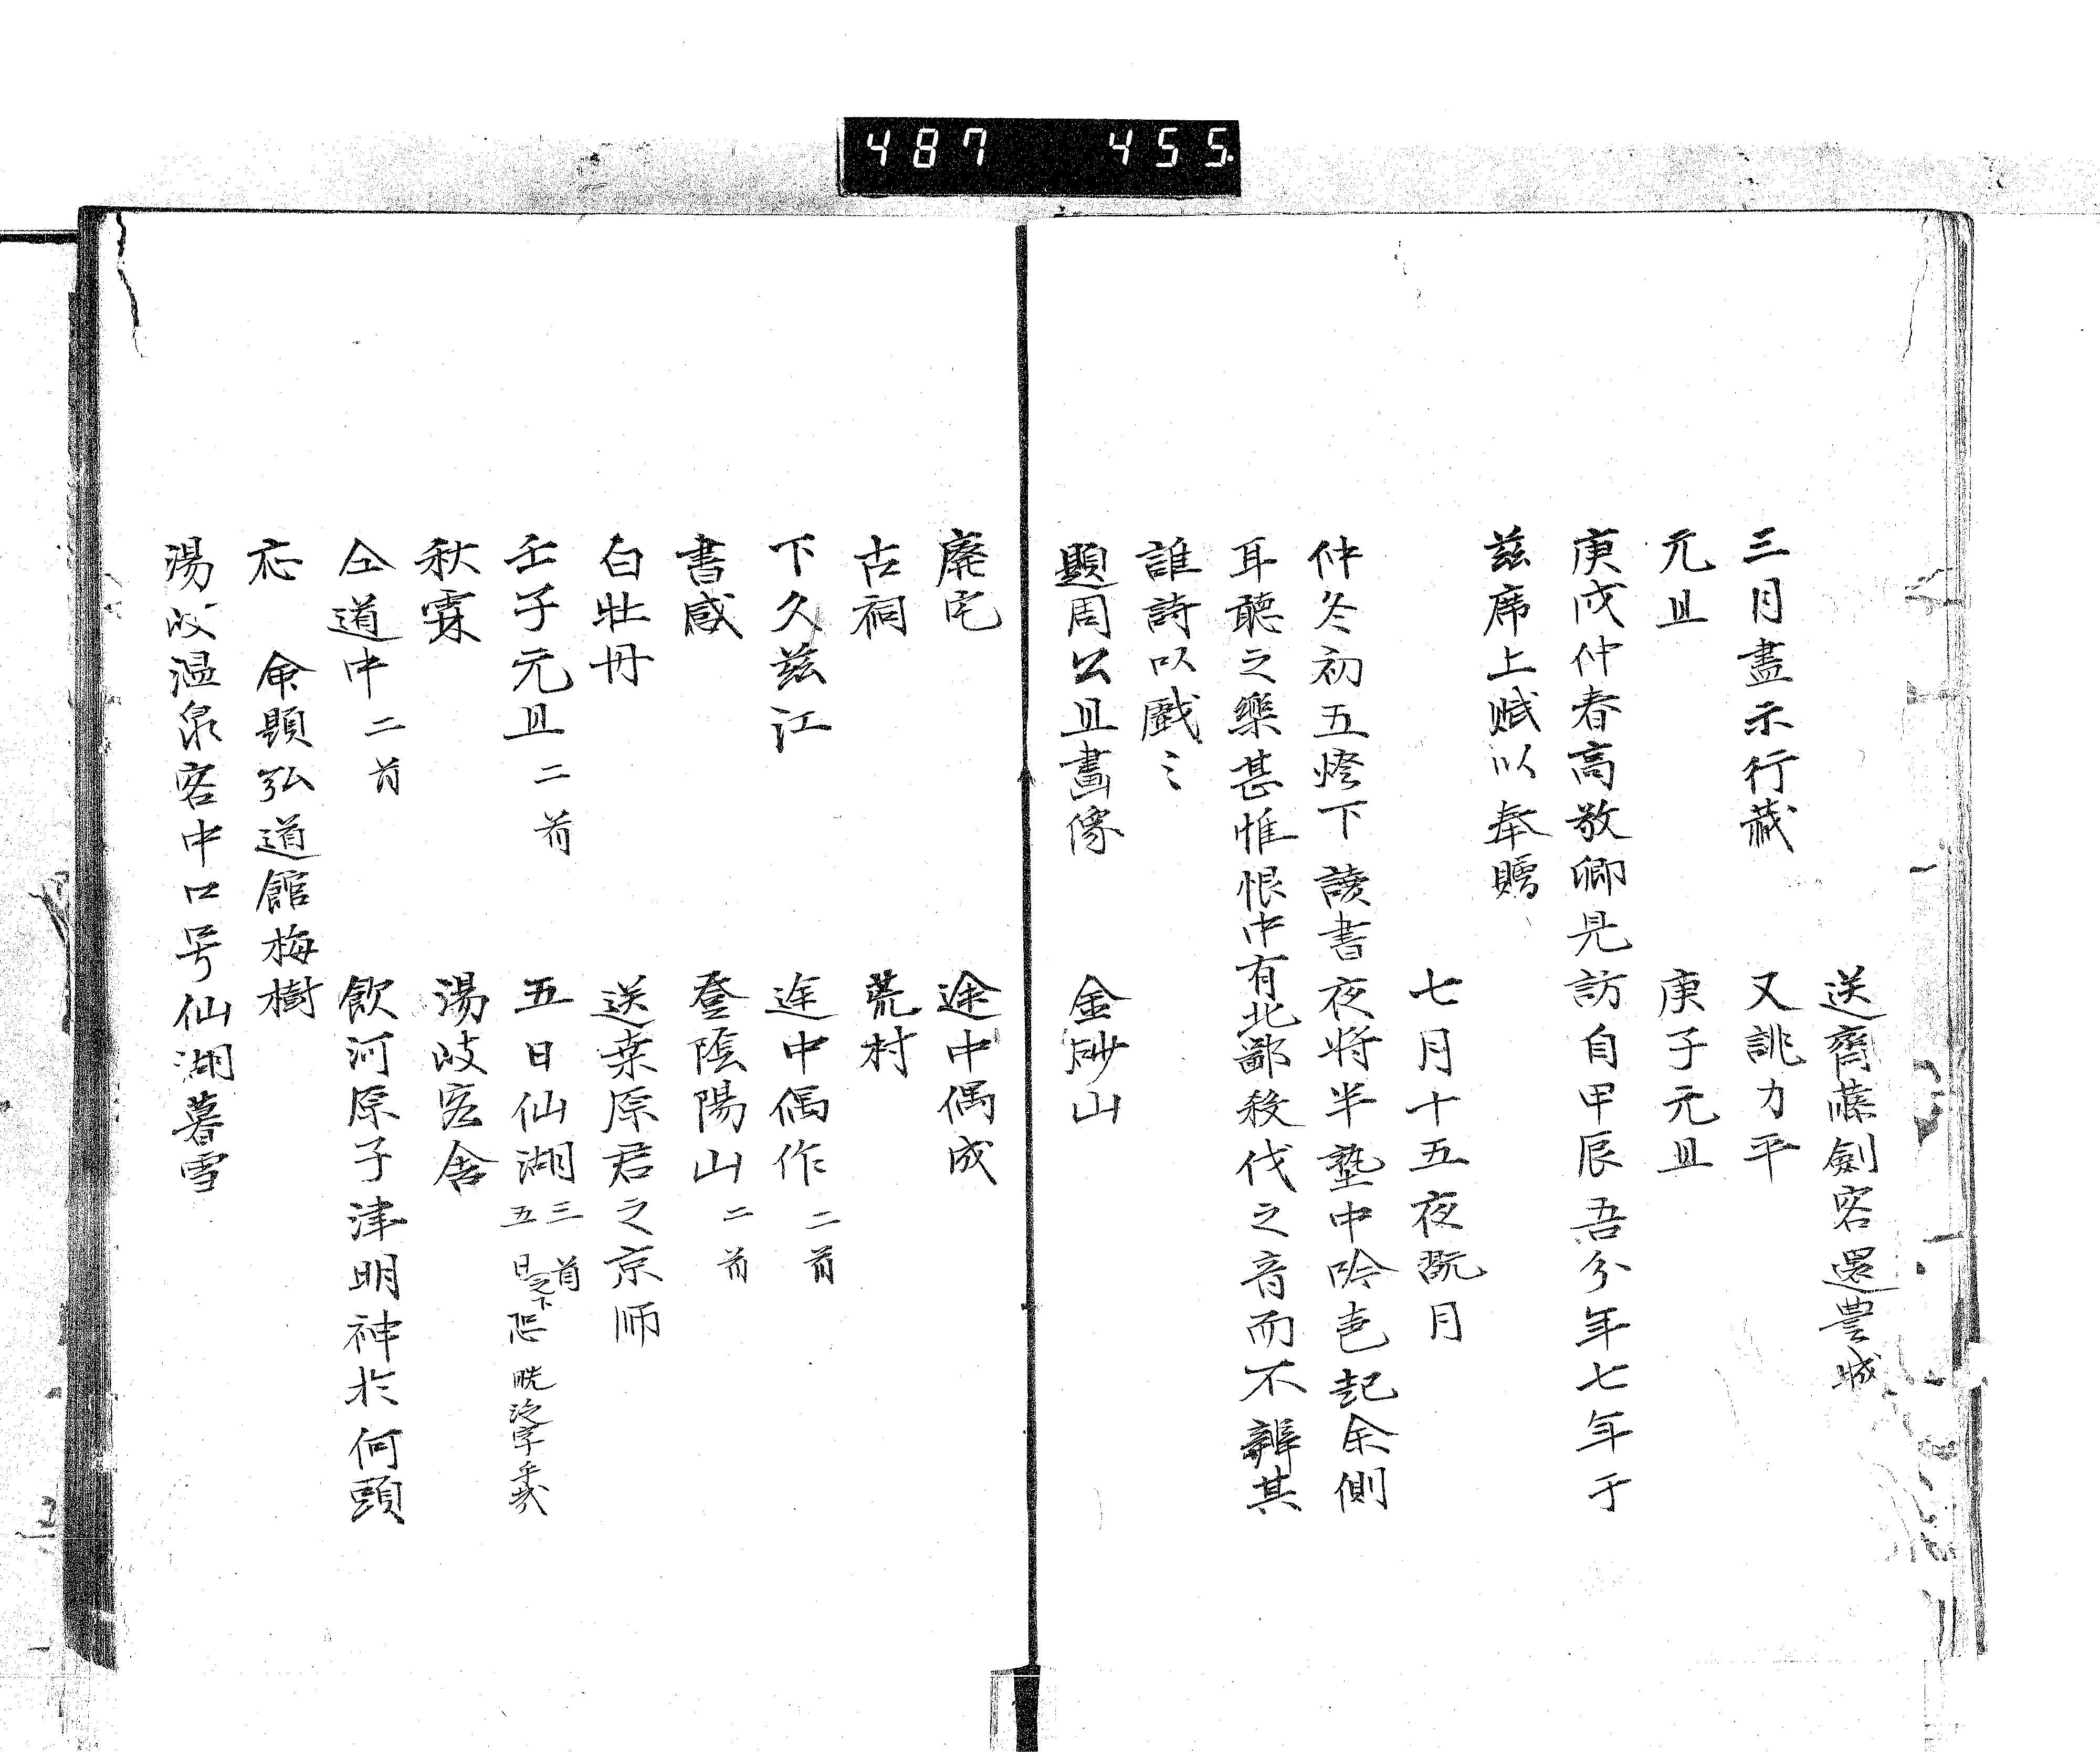 487 455
送齊藤劍客還豊城
三月盡示行藏 又誂力平
元旦 庚子元旦
庚戌仲春高敬卿見訪自甲辰吾分年七年于
茲席上賦以奉贈
七月十五夜翫月
仲冬初五燈下讀書夜将半塾中吟声起余側
耳聽之樂甚惟恨中有北鄙殺伐之音而不辨其
誰詩以戲〻
題周公旦畫像 金砂山
廃宅 途中偶成
古祠 荒村
下久茲江 途中偶作 二首
書感 登陰陽山 二首
白牡丹 送桒原君之京师
壬子元旦 二首 五日仙湖 三首 五日之下恐脱泛字乎
秋霖 湯岐客舍
仝道中 二首 飲河原子津明神於何頭
応 命題弘道館梅樹
湯岐温泉客中口号仙湖暮雪